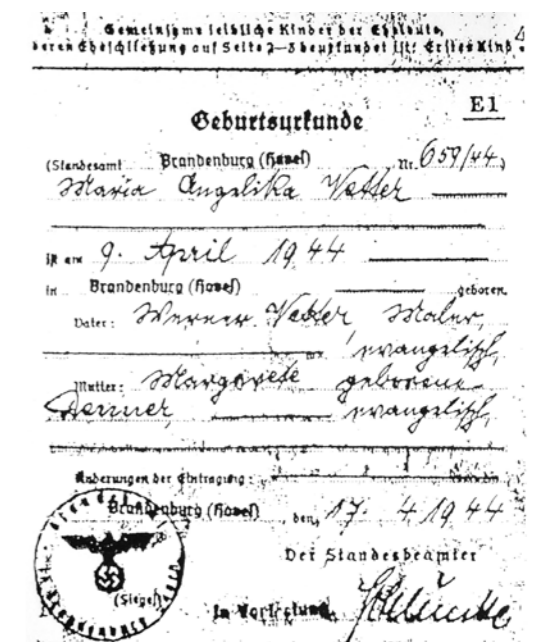 Gemeinsame leibliche Kinder der Eheleute,
deren Eheschließung auf Seite 2–3 beurkundet ist: Erstes Kind
E1
Geburtsurkunde
(Standesamt Brandenburg (Havel) Nr. 659/44)
Maria Angelika Vetter
ist am 9. April 1944
in Brandenburg (Havel) geboren.
Vater: Werner Vetter, Maler,
evangelisch,
Mutter: Margarete geborene
evangelisch,
Änderungen der Eintragung:
Brandenburg (Havel), den 17. 4. 1944
Der Standesbeamte
(Siegel)
In Vertretung